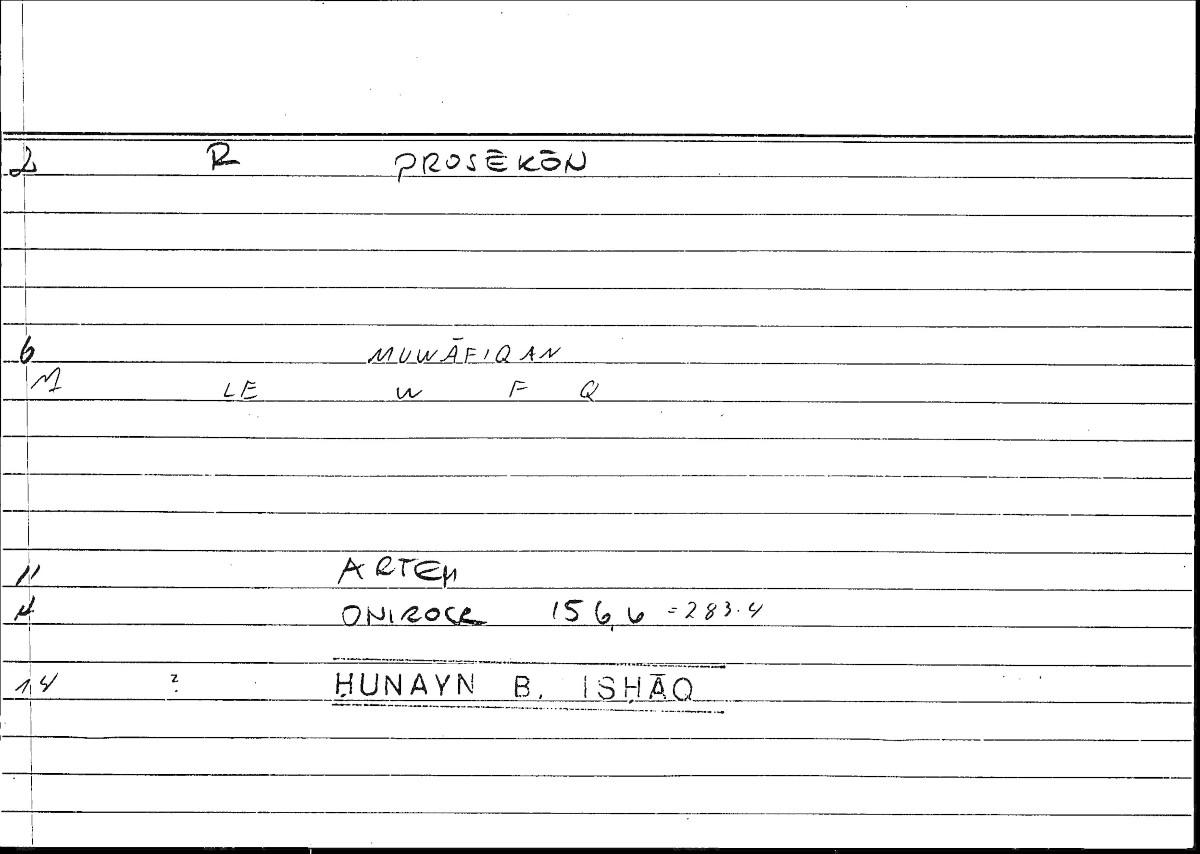 2 R PROSĒKŌN
6 MUWĀFIQAN
M LE W F Q
11 ARTEM
H ONIROCR 156,6 =283.4
14 ? ḤUNAYN B. ISḤĀQ